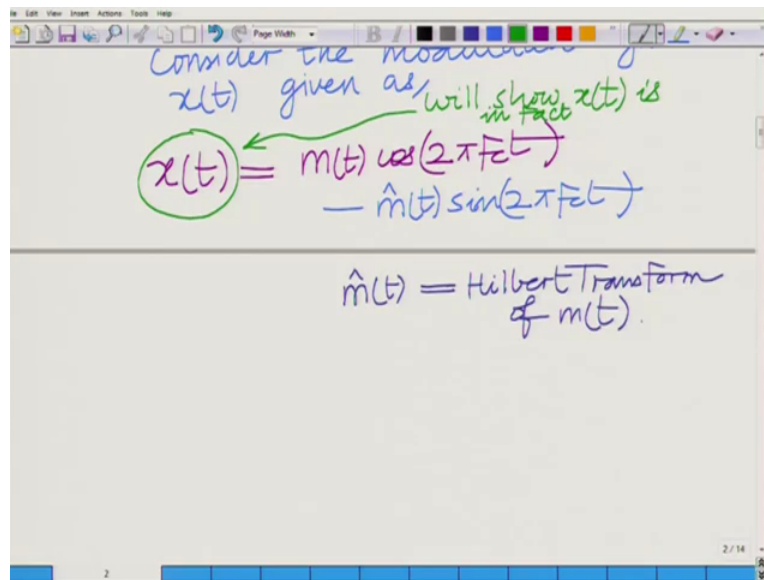 File Edit View Insert Actions Tools Help
Page Width
B I
Consider the
x(t) given as,
will show x(t) is
in fact
x(t) = m(t) cos(2πFct)
− m̂(t) sin(2πFct)
m̂(t) = Hilbert Transform
of m(t).
2 / 14
2